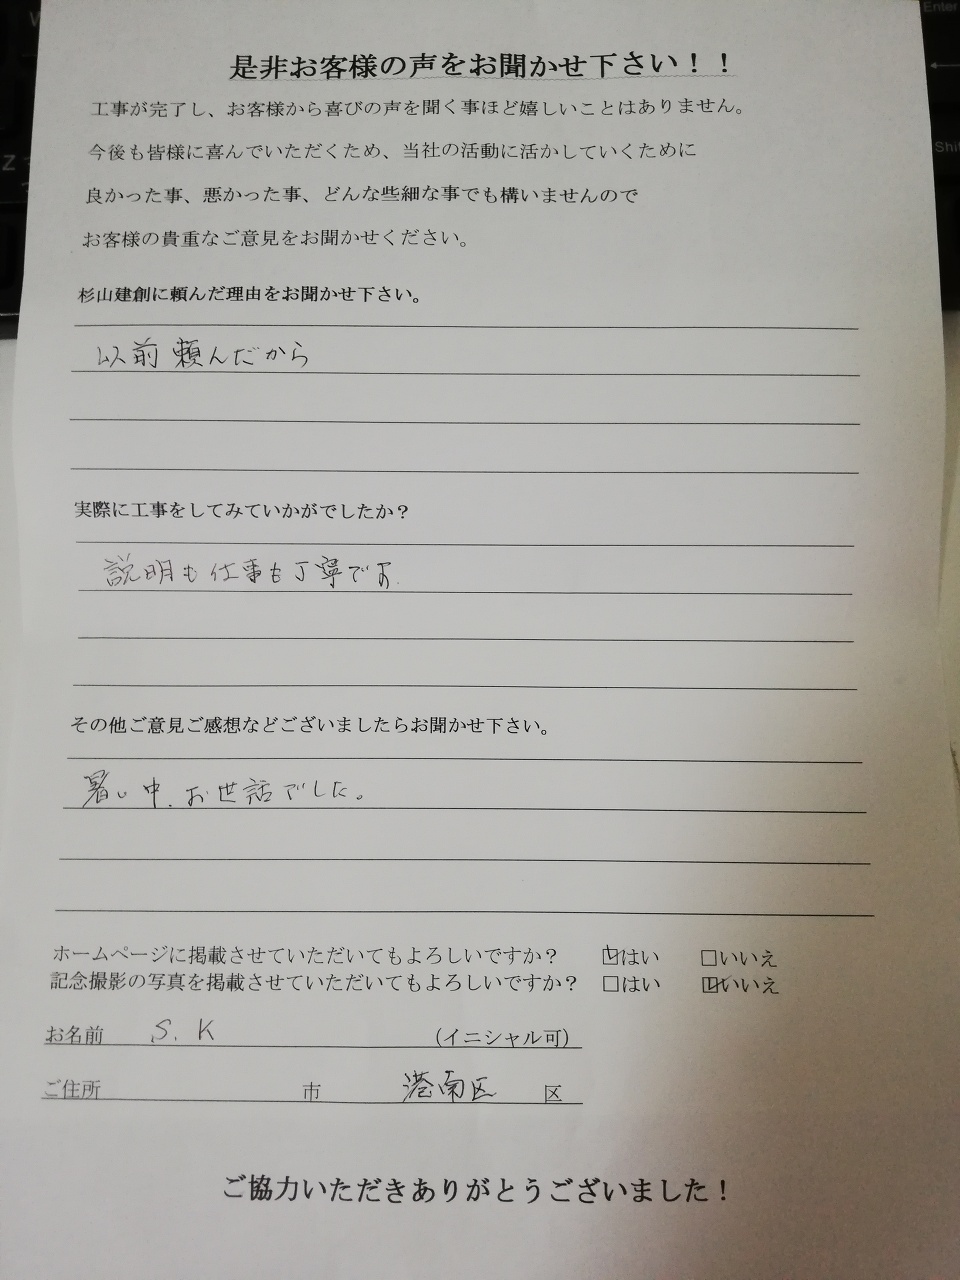 是非お客様の声をお聞かせ下さい！！
工事が完了し、お客様から喜びの声を聞く事ほど嬉しいことはありません。
今後も皆様に喜んでいただくため、当社の活動に活かしていくために
良かった事、悪かった事、どんな些細な事でも構いませんので
お客様の貴重なご意見をお聞かせください。
杉山建創に頼んだ理由をお聞かせ下さい。
以前頼んだから
実際に工事をしてみていかがでしたか？
説明も仕事も丁寧です.
その他ご意見ご感想などございましたらお聞かせ下さい。
暑い中、お世話でした。
ホームページに掲載させていただいてもよろしいですか？ ☑はい □いいえ
記念撮影の写真を掲載させていただいてもよろしいですか？ □はい ☑いいえ
お名前 S. K (イニシャル可)
ご住所 市 港南区 区
ご協力いただきありがとうございました！
Enter
Shift
Z